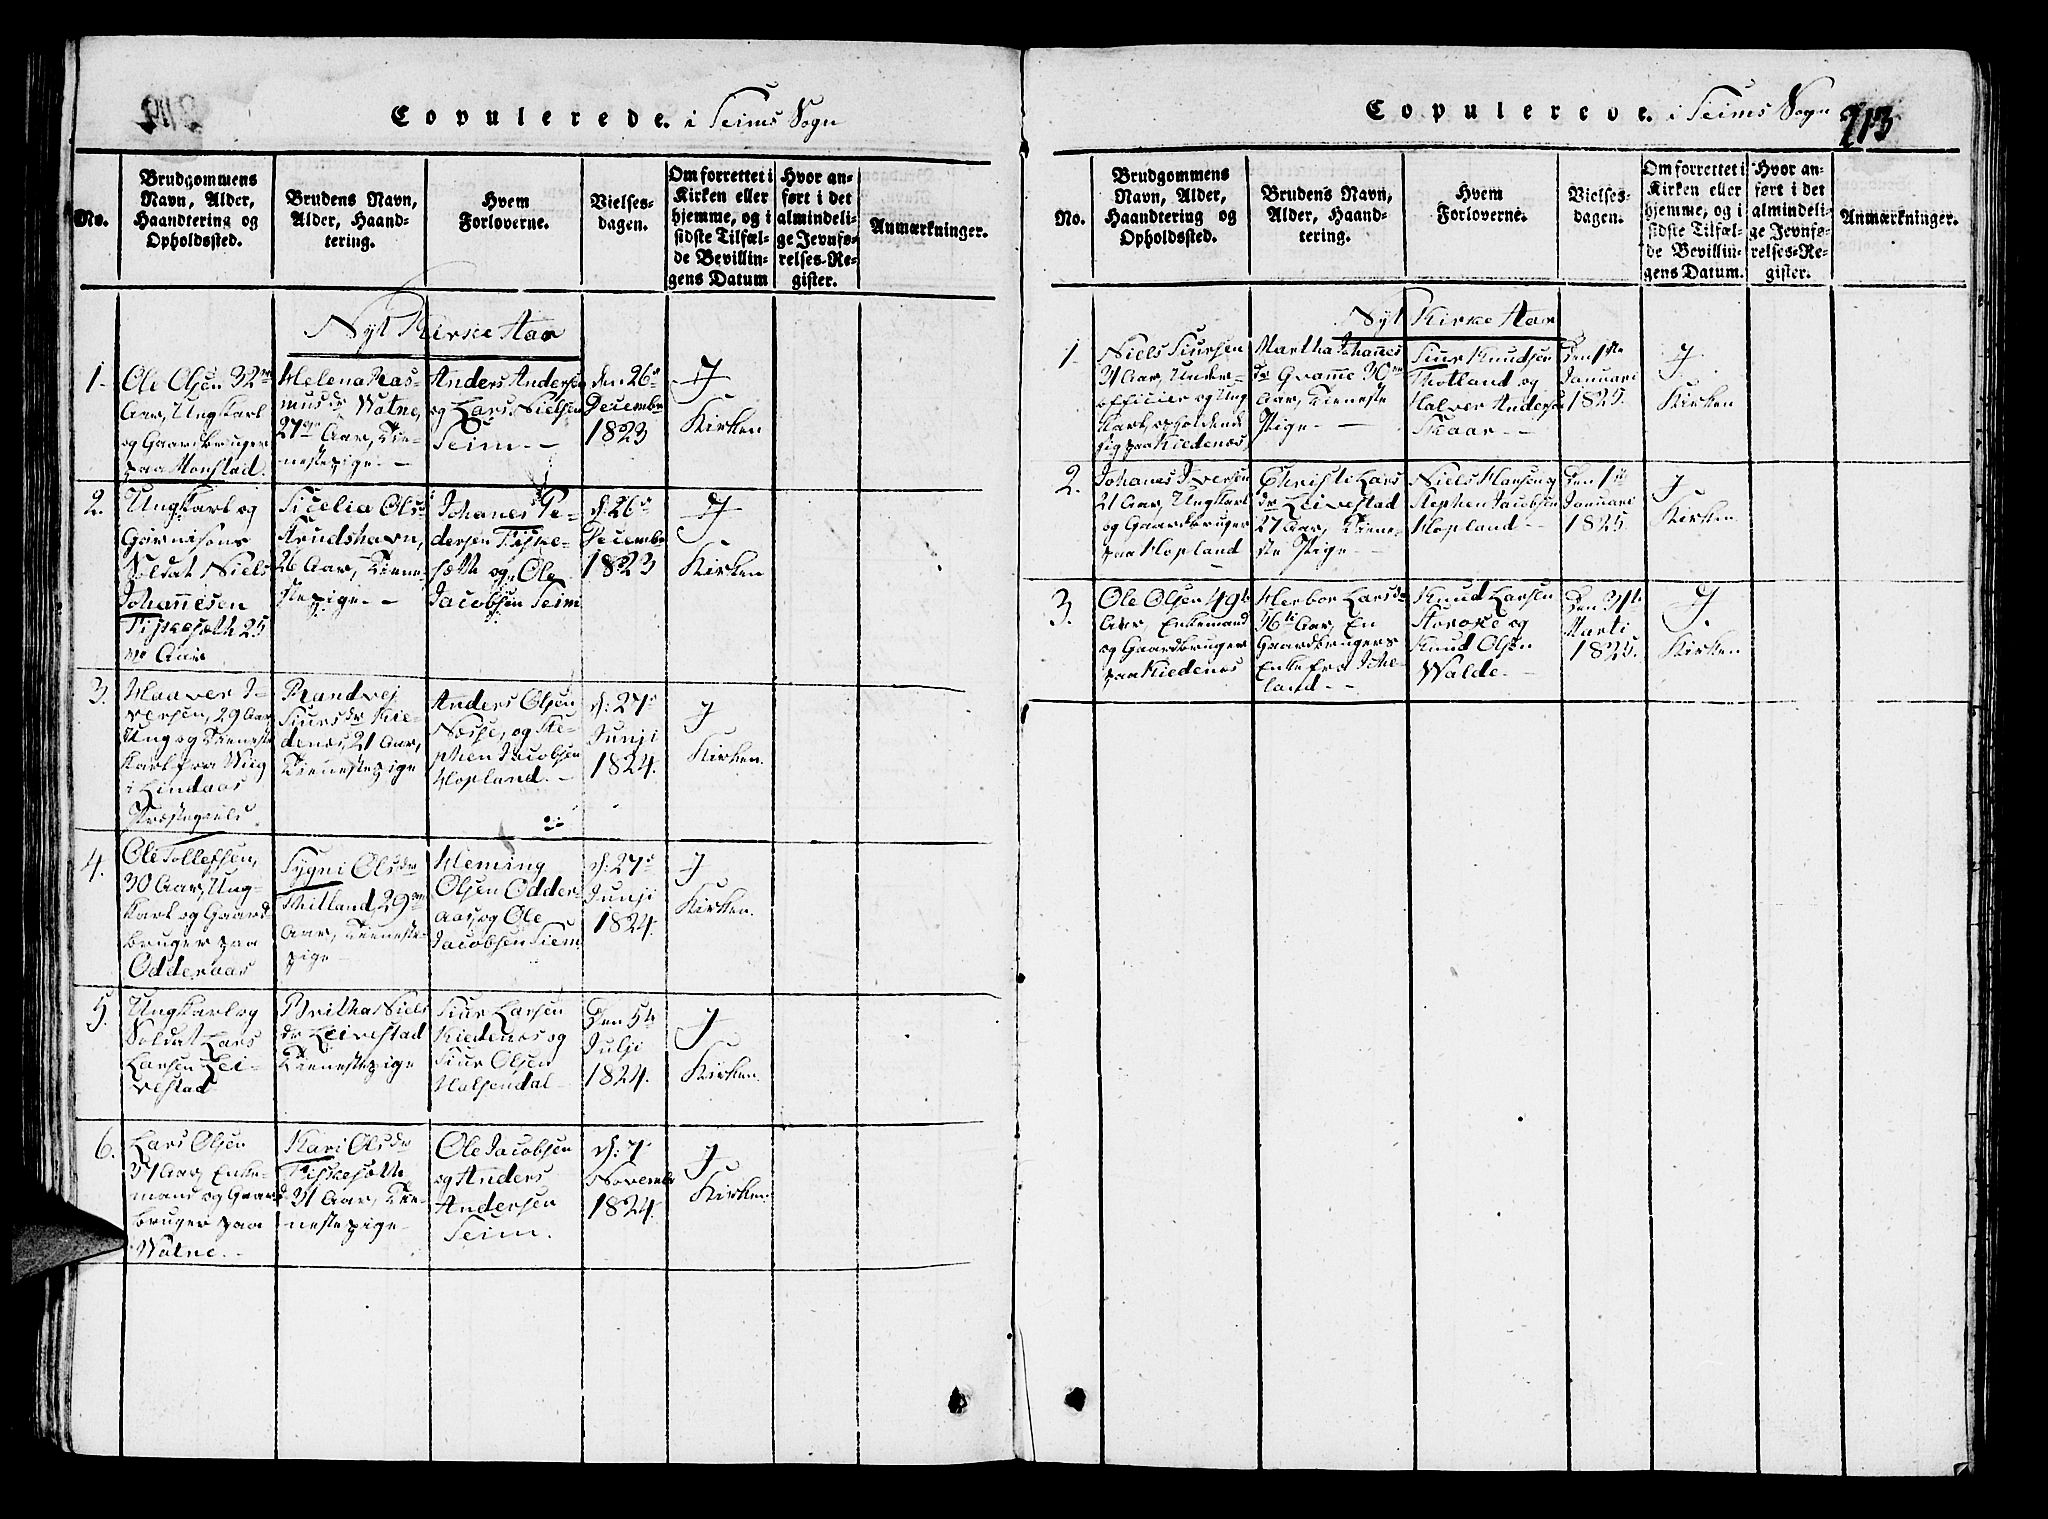 Copulerede. i Seims Sogn
No.
Brudgommens
Navn, Alder,
Haandtering og
Opholdssted.
Brudens Navn,
Alder, Haand-
tering.
Hvem
Forloverne.
Vielses-
dagen.
Om forrettet i
Kirken eller
hjemme, og i
sidste Tilfæl-
de Bevillin-
gens Datum
Hvor an-
ført i det
almindeli-
ge Jevnfø-
relses-Re-
gister.
Anmærkninger.
Nyt Kirke Aar
1.
Ole Olsen 32
Aar, Ungkarl
og Gaardbruger
paa Monstad.
Helena Ras-
musdr Watne,
27 Aar, Tie-
nestepige. -
Anders Andersen
og Lars Nielsen
Seim. -
den 26
December
1823
I
Kirken
2.
Ungkarl og
Garnisons
Soldat Niels
Johannesen
Fiskesæth 25
Aar
Sicelia Olsdr
Arudshavn,
26 Aar, Tiene-
stepige. -
Johanes Pe-
dersen Fiske-
sætte og Ole
Jacobsen Seim
d. 26
December
1823
I
Kirken
3.
Haaver I-
versen, 29 Aar,
Ung og Tieneste
Karl fra Wiig
i Lindaas
Præstegield.
Randvej
Siursdr Kie-
denes, 21 Aar,
Tienestepige
Anders Olsen
Næsse, og Ste-
phen Jacobsen
Hopland. -
d. 27
Junji
1824.
I
Kirken.
4.
Ole Tollefsen,
30 Aar, Ung-
karl og Gaard
bruger paa
Odderaas
Sygni Olsdr
Hilland, 29
Aar, Tieneste-
pige
Fleming
Olsen Odder-
aas, og Ole
Jacobsen Siem
d. 27
Junji
1824.
I
Kirken.
5.
Ungkarl og
Soldat Lars
Larsen Lei-
vestad
Britha Niels
dr Leivestad
Tienestepige
Siur Larsen
Kiedenes og
Siur Olsen
Halsendal
Den 5te
Julji
1824.
I
Kirken.
6.
Lars Olsen
37 Aar, Enke-
mand og Gaard
bruger paa
Watne. -
Kari Olsdr
Fiskesætte
31 Aar, Tie-
nestepige -
Ole Jacobsen
og Anders
Andersen
Seim.
d. 7
November
1824.
I
Kirken.
Copulerede. i Seims Sogn 213
No.
Brudgommens
Navn, Alder,
Haandtering og
Opholdssted.
Brudens Navn,
Alder, Haand-
tering.
Hvem
Forloverne.
Vielses-
dagen.
Om forrettet i
Kirken eller
hjemme, og i
sidste Tilfæl-
de Bevillin-
gens Datum.
Hvor an-
ført i det
almindeli-
ge Jevnfø-
relses-Re-
gister.
Anmærkninger.
Nyt Kirke Aar
1.
Niels Siursen
31 Aar, Under-
officier og Ung
Karl, opholdende
sig paa Kiedenes,
Martha Johannes
dr Qvamme 30
Aar, Tieneste
Pige -
Siur Knudsen
Totland og
Halver Andersen
Skaar -
Den 1ste
Januari
1825.
I
Kirken
2.
Johanes Iversen
21 Aar, Ungkarl
og Gaardbruger
paa Hopland
Christe Lars
dr Leivestad
27 Aar, Tiene-
ste Pige -
Niels Hansen og
Stephen Jacobsen
Hopland -
Den 1ste
Januari
1825.
I
Kirken.
3.
Ole Olsen 49
Aar, Enkemand
og Gaardbruger
paa Kiedenes
Herbor Larsdr
36 Aar, En
Gaardbrugers
Enke fra Isse-
land -
Knud Larsen
Storoke og
Knud Olsen
Walde. -
Den 31te
Marti
1825.
I
Kirken